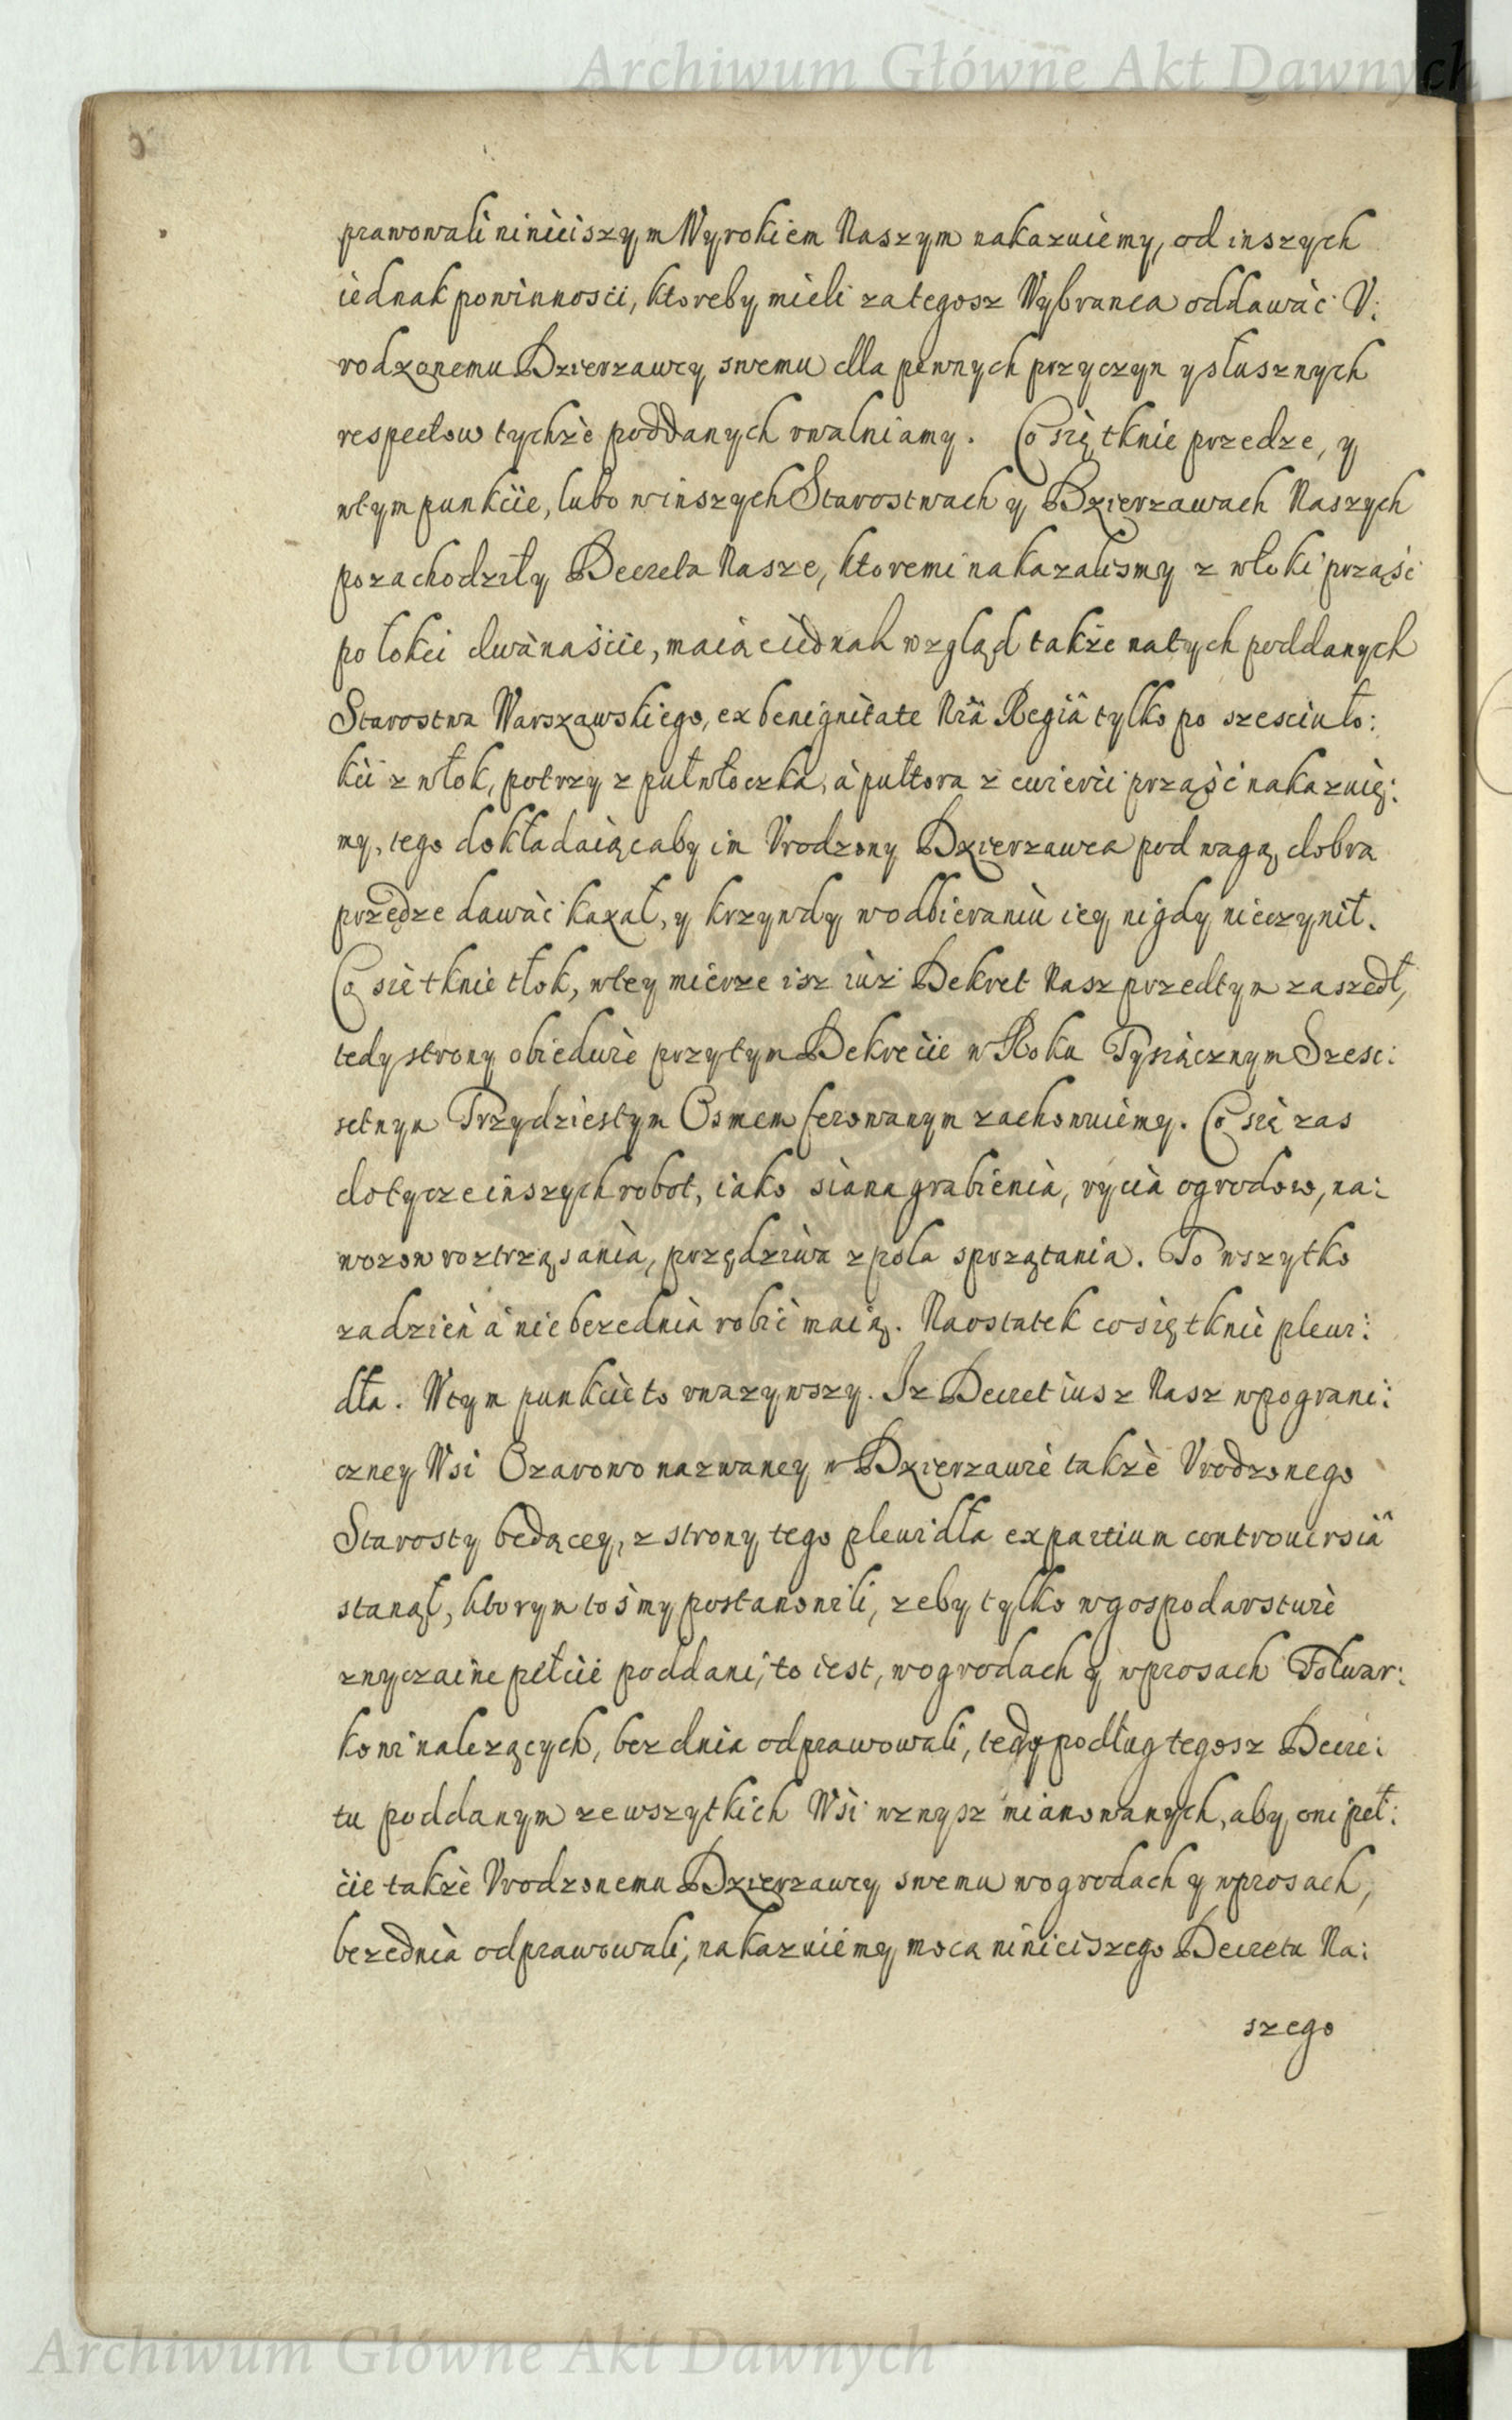 Archiwum Główne Akt Dawnych
prawowali ninieiszym Wyrokiem Naszym nakazuiemy, od inszych
iednak powinnosci, ktoreby mieli za tegosz Wybranca oddawac V:
rodzonemu Dzierzawcy swemu dla pewnych przyczyn y słusznych
respectow tychże poddanych uwalniamy. Co się tknie przedze, y
wtym punkcie, lubo winszych Starostwach y Dzierzawach Naszych
pozachodziły Decreta Nasze, ktoremi nakazalismy z włoki prząść
po łokci dwanaście, maiąc iednak wzgląd także natych poddanych
Starostwa Warszawskiego, ex benignitate Nrã Regiâ tylko po szesciu ło:
kci z włok, potrzy z pułwłoczka, à pułtora z cwierci prząść nakazuię:
my, tego dokładaiąc aby im Vrodzony Dzierzawca pod wagą dobra
przędze dawać kazał, y krzywdy wodbieraniu iey nigdy nieczynił.
Co się tknie tłok, wtey mierze isz iuż Dekret Nasz przedtym zaszedł,
tedy strony obiedwie przytym Dekrecie w Roku Tysiącznym Szesc:
setnym Trzydziestym Osmem ferowanym zachowuiemy. Co się zas
dotycze inszych robot, iako siana grabienia, rycia ogrodow, na:
wozow roztrząsania, przędziwa z pola sprzątania. To wszytko
zadzień à nie bezednia robić maią. Naostatek co się tknie plewi:
dła. Wtym punkcie to uwazywszy. Iz Decret iusz Nasz wpograni:
czney Wsi Ozarowo nazwaney w Dzierzawie także Vrodzonego
Starosty będącey, z strony tego plewidła ex partium controuersiâ
stanął, ktorym tośmy postanowili, zeby tylko wgospodarstwie
zwyczaine pełcie poddani, to iest, wogrodach y wprosach Folwar:
kowi nalezących, bez dnia odprawowali, tedy podług tegosz Decre:
tu poddanym ze wszytkich Wsi wznysz mianowanych, aby oni peł:
cie także Vrodzonemu Dzierzawcy swemu wogrodach y wprosach,
bezednia odprawowali, nakazuiemy mocą ninieiszego Decretu Na:
szego
Archiwum Główne Akt Dawnych